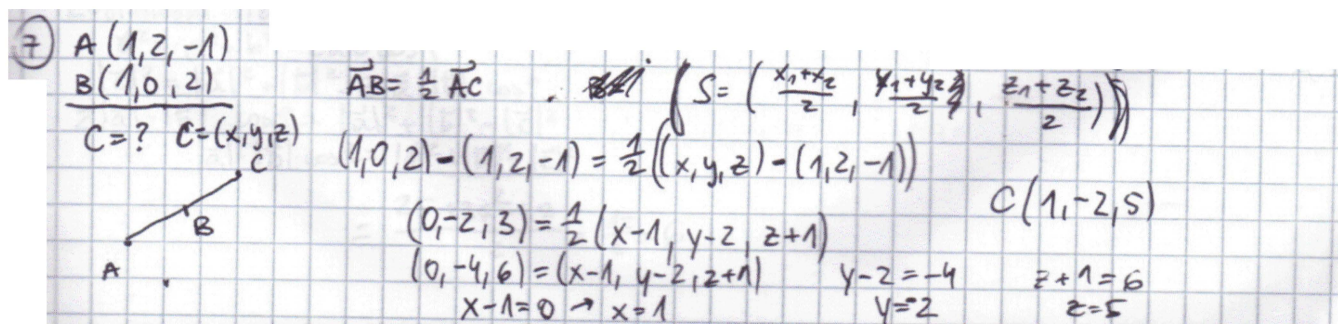 7 A(1,2,-1)
B(1,0,2)
C=? C=(x,y,z)
A B C
AB = 1/2 AC
(S=((x₁+x₂)/2, (y₁+y₂)/2, (z₁+z₂)/2))
(1,0,2)-(1,2,-1) = 1/2((x,y,z)-(1,2,-1))
(0,-2,3) = 1/2(x-1, y-2, z+1)
(0,-4,6) = (x-1, y-2, z+1)
x-1=0 → x=1
y-2=-4
y=-2
z+1=6
z=5
C(1,-2,5)